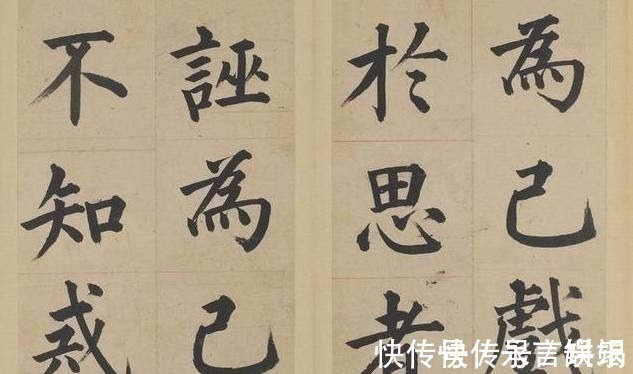 為己戲
於思者
誣為己
不知戒
快传